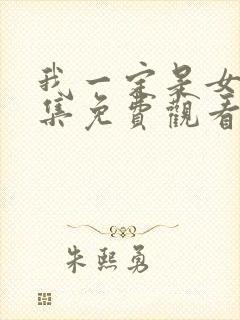 我一定是女
集免費觀看
朱熙勇